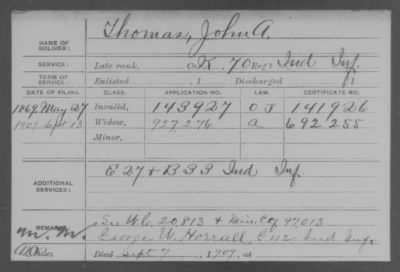 NAME OF SOLDIER: Thomas, John A.
SERVICE: Late rank, Co. K, 70 Reg't Ind Inf.
TERM OF SERVICE: Enlisted , 1 Discharged , 1
DATE OF FILING. CLASS. APPLICATION NO. LAW. CERTIFICATE NO.
1869 May 27 Invalid, 143927 O J 141926
1909 Sept 13 Widow, 927,276 a 692 255
Minor,
ADDITIONAL SERVICES: E 27 & B 33 Ind Inf.
REMARKS: See W.C. 20813 & Min Ctf 97,013
George W. Horrall, E 42 Ind Inf.
Died Sept 7, 1909, at